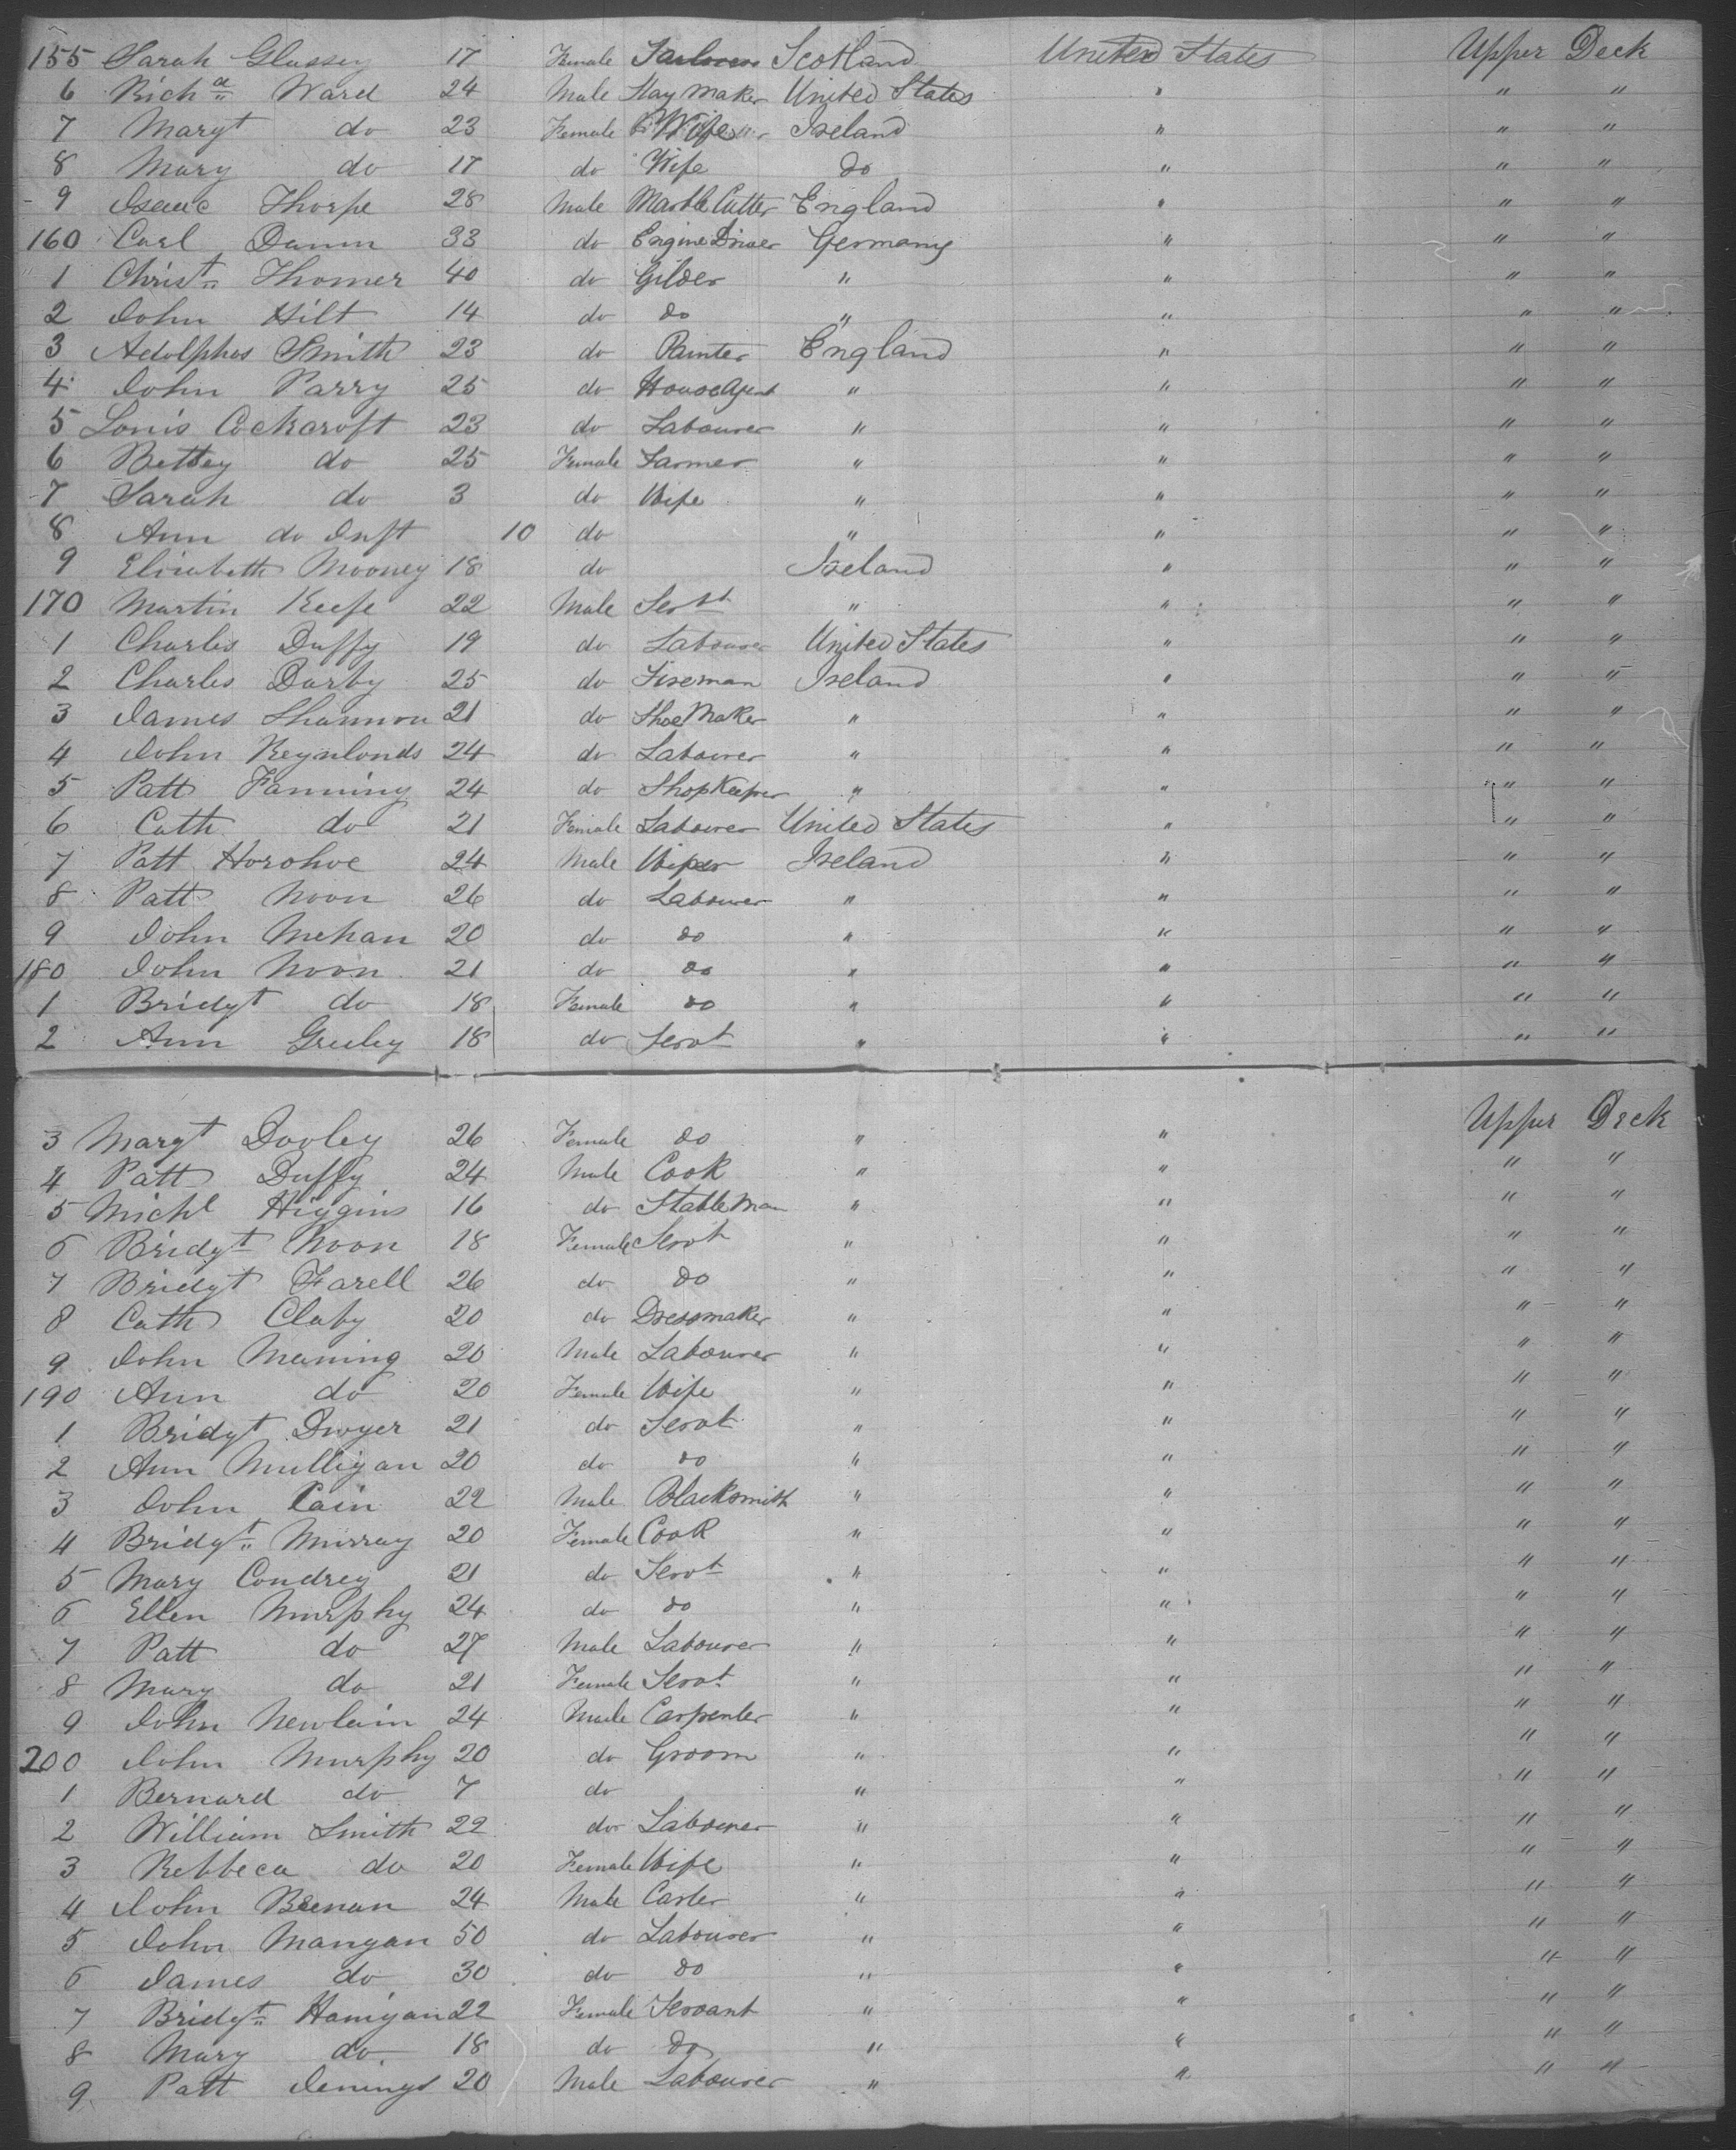 155 Sarah Glassey 17 Female Scotland United States Upper Deck
6 Richd Ward 24 Male Stay Maker United States " " "
7 Margt do 23 Female Wife Ireland " " "
8 Mary do 17 do Wife do " " "
9 Isaac Thorpe 28 Male Marble Cutter England " " "
160 Carl Damm 33 do Engine Driver Germany " " "
1 Christn Thomer 40 do Gilder " " " "
2 John Hilt 14 do do " " " "
3 Adolphos Smith 23 do Painter England " " "
4 John Parry 25 do House Agent " " " "
5 Louis Cockcroft 23 do Labourer " " " "
6 Bettey do 25 Female Farmer " " " "
7 Sarah do 3 do Wife " " " "
8 Ann do Inft 10 do " " " "
9 Elizabeth Mooney 18 do Ireland " " "
170 Martin Keefe 22 Male Servt " " " "
1 Charles Duffy 19 do Labourer United States " " "
2 Charles Darby 25 do Fireman Ireland " " "
3 James Shannon 21 do Shoe Maker " " " "
4 John Reynlonds 24 do Labourer " " " "
5 Patt Fanning 24 do Shop Keeper " " " "
6 Cath do 21 Female Labourer United States " " "
7 Patt Horohoe 24 Male Wiper Ireland " " "
8 Patt Noon 26 do Labourer " " " "
9 John Mehan 20 do do " " " "
180 John Noon 21 do do " " " "
1 Bridgt do 18 Female do " " " "
2 Ann Greeley 18 do Servt " " " "
3 Margt Dooley 26 Female do " " Upper Deck
4 Patt Duffy 24 Male Cook " " " "
5 Michl Higgins 16 do Stable Man " " " "
6 Bridgt Noon 18 Female Servt " " " "
7 Bridgt Farell 26 do do " " " "
8 Cath Claby 20 do Dressmaker " " " "
9 John Meaning 20 Male Labourer " " " "
190 Ann do 20 Female Wife " " " "
1 Bridgt Dwyer 21 do Servt " " " "
2 Ann Mulligan 20 do do " " " "
3 John Cain 22 Male Blacksmith " " " "
4 Bridgt Murray 20 Female Cook " " " "
5 Mary Condrey 21 do Servt " " " "
6 Ellen Murphy 24 do do " " " "
7 Patt do 27 Male Labourer " " " "
8 Mary do 21 Female Servt " " " "
9 John Newlain 24 Male Carpenter " " " "
200 John Murphy 20 do Groom " " " "
1 Bernard do 7 do " " " "
2 William Smith 22 do Labourer " " " "
3 Rebbeca do 20 Female Wife " " " "
4 John Beenan 24 Male Carter " " " "
5 John Mangan 50 do Labourer " " " "
6 James do 30 do do " " " "
7 Bridgt Hanigan 22 Female Servant " " " "
8 Mary do 18 do do " " " "
9 Patt Jenings 20 Male Labourer " " " "